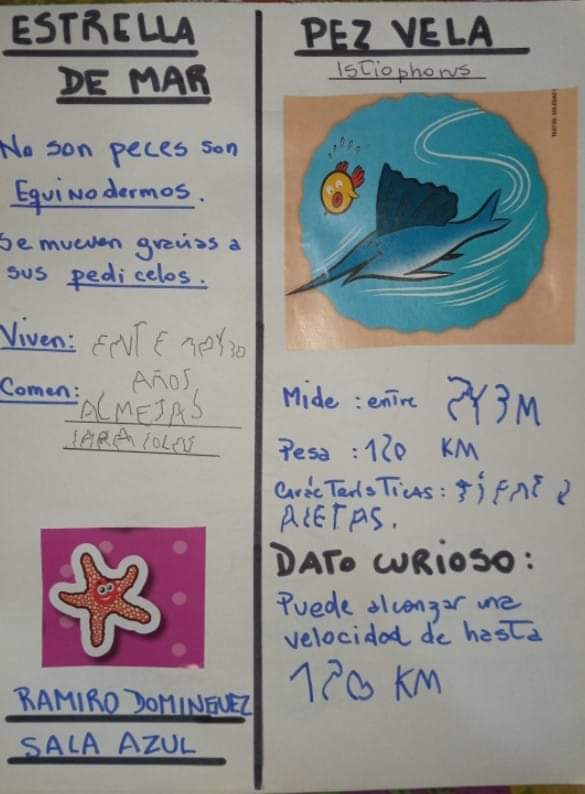 ESTRELLA
DE MAR
No son peces son
Equinodermos.
Se mueven gracias a
sus pedicelos.
Viven: ENTE 20Y30
AÑOS
Comen:
ALMEJAS
CARACOLES
RAMIRO DOMINGUEZ
SALA AZUL
PEZ VELA
Istiophorus
Mide: entre 2Y3M
Pesa: 120 KM
Carácterísticas: TIENE 2
ALETAS.
DATO CURIOSO:
Puede alcanzar una
velocidad de hasta
120 KM